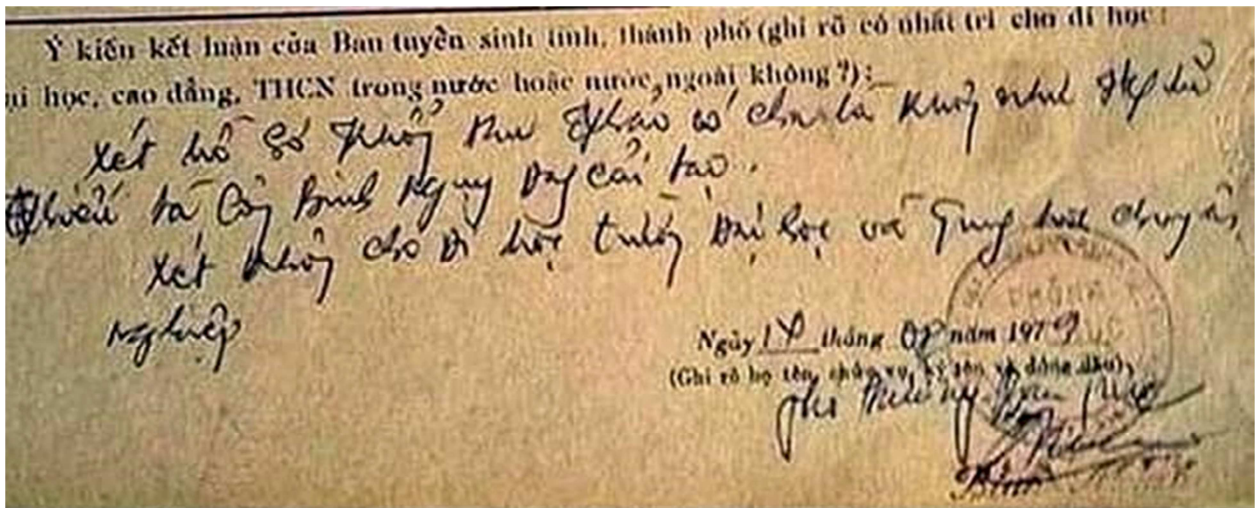 Ý kiến kết luận của Ban tuyển sinh tỉnh, thành phố (ghi rõ có nhất trí cho đi học
ại học, cao đẳng, THCN trong nước hoặc nước ngoài không?):
Xét hồ sơ Khổng Thu Thảo có cha là Khổng như
Thiếu tá Công Binh Ngụy Đang cải tạo.
Xét không cho đi học trường Đại học và Trung học chuyên
Nghiệp
Ngày 14 tháng 07 năm 1979
(Ghi rõ họ tên, chức vụ, ký tên và đóng dấu)
PHÒNG